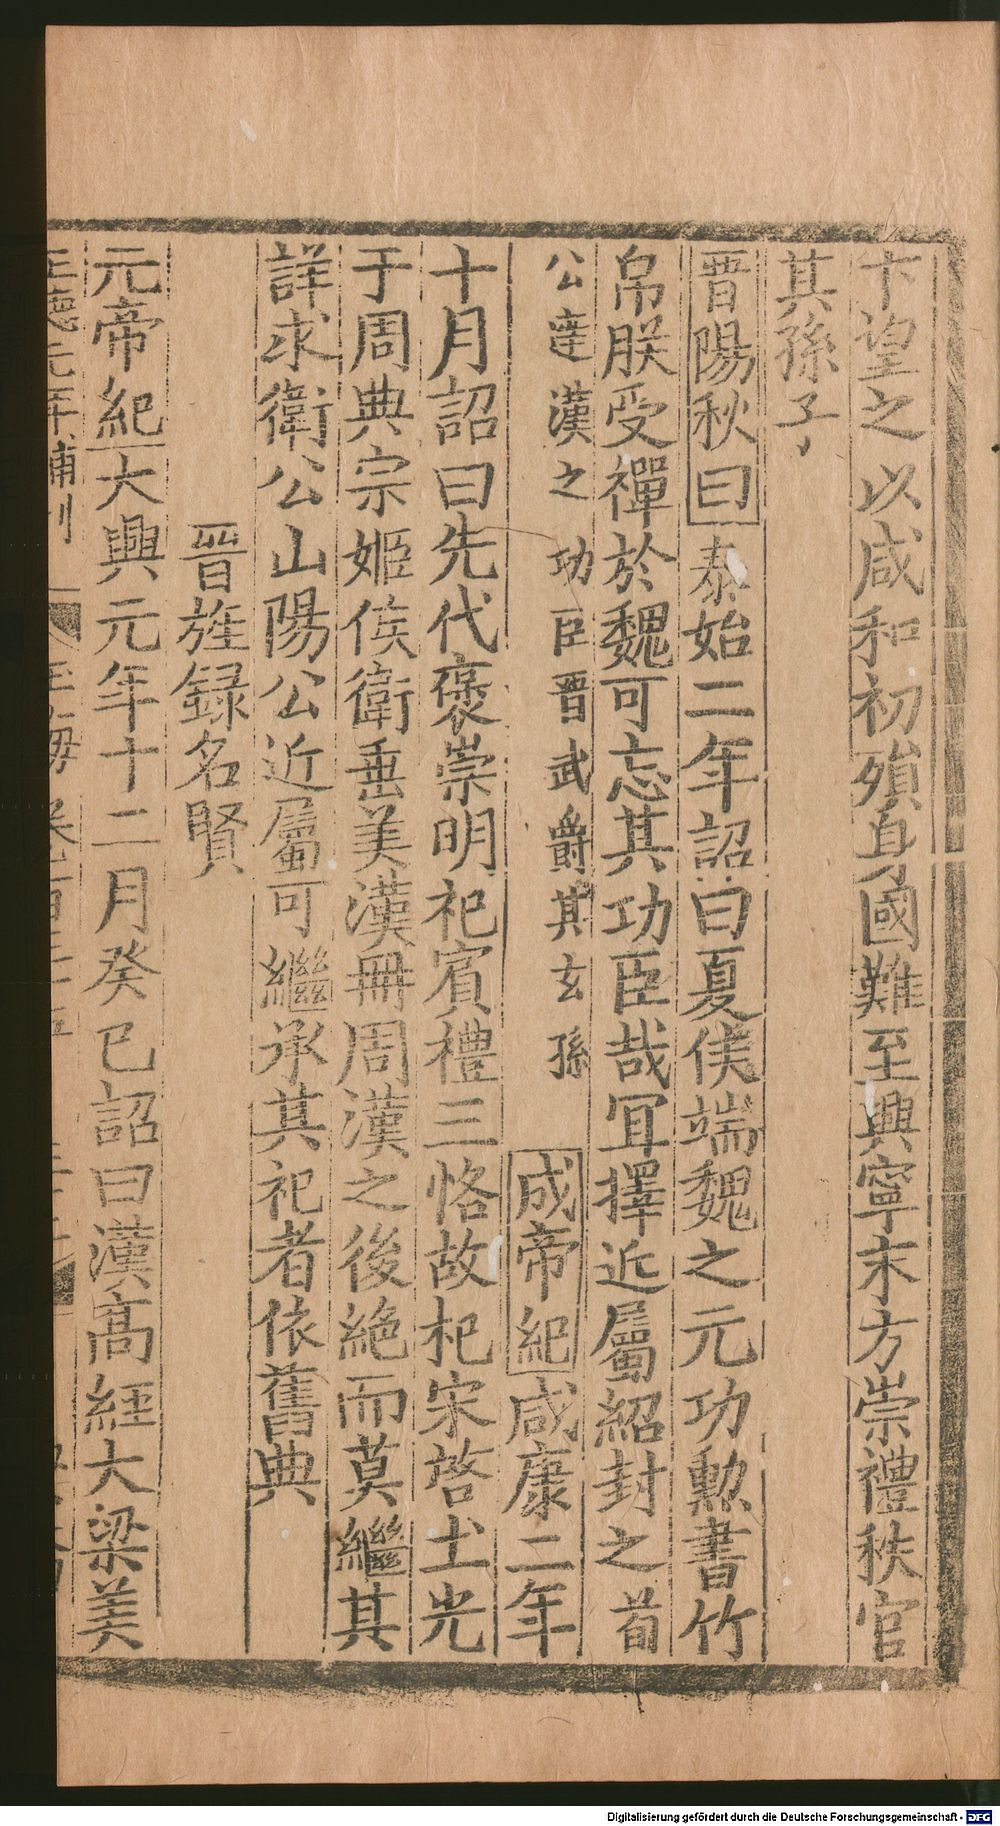 卞望之以咸和初殞身國難至興寧末方崇禮秩官
其孫子
晋陽秋曰泰始二年詔曰夏侯端魏之元功勲書竹
帛朕受禪於魏可忘其功臣哉冝擇近屬紹封之荀
公達漢之功臣晋武爵其玄孫成帝紀咸康二年
十月詔曰先代褒崇明祀賓禮三恪故杞宋啓土光
于周典宗姬侯衛垂美漢冊周漢之後絶而莫繼其
詳求衛公山陽公近屬可繼承其祀者依舊典
晋旌録名賢
元帝紀大興元年十二月癸巳詔曰漢高經大梁美
正德元年補刊
Digitalisierung gefördert durch die Deutsche Forschungsgemeinschaft - DFG